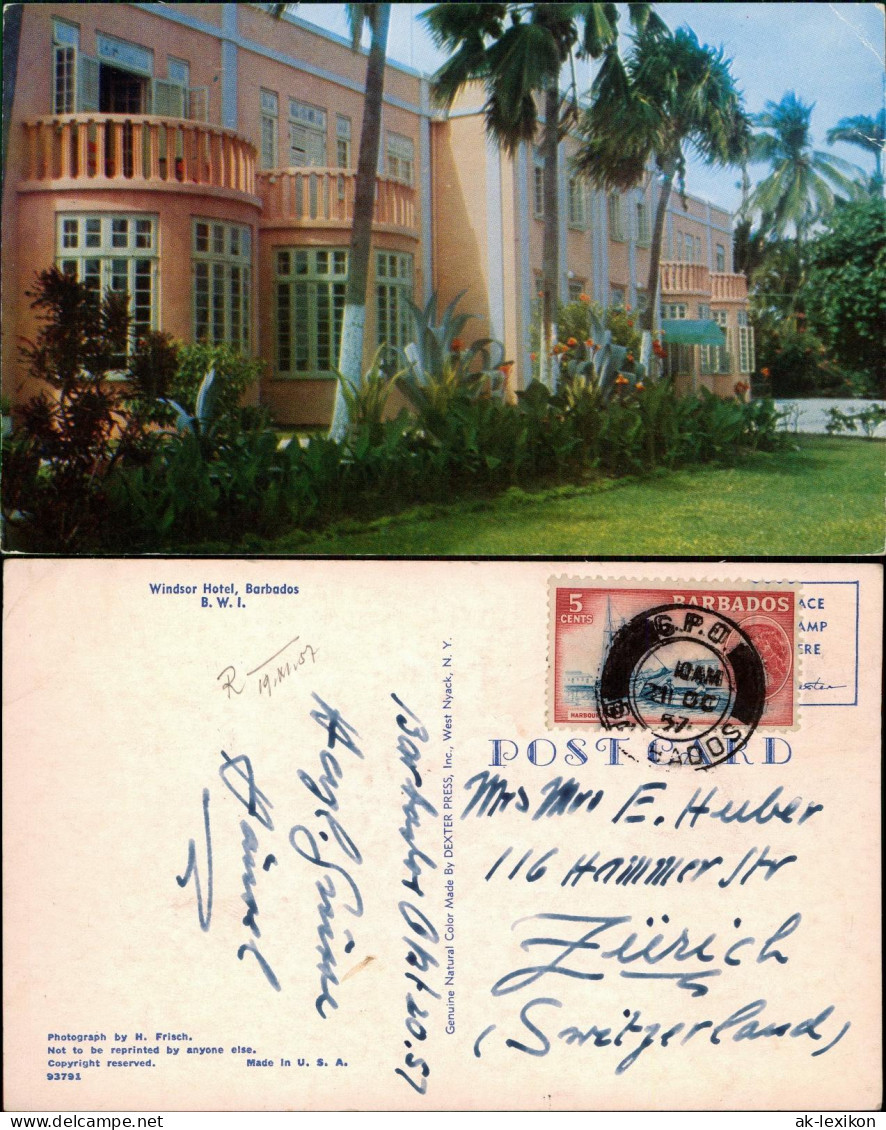 Windsor Hotel, Barbados
B. W. I.
R 19.XI.57
Barbados Okt 20.57
Herzl. Grüsse
Genuine Natural Color Made By DEXTER PRESS, Inc., West Nyack, N. Y.
Photograph by H. Frisch.
Not to be reprinted by anyone else.
Copyright reserved. Made in U. S. A.
93791
5
CENTS
BARBADOS
HARBOUR
G.P.O.
10 AM
21 OC
57
BARBADOS
ACE
AMP
ERE
POST CARD
Mrs Mrs E. Huber
116 Hammer Str
Zürich
(Switzerland)
ak-lexikon